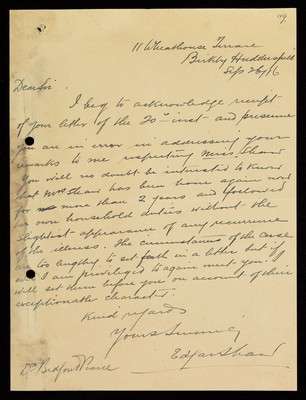 11 Wheathouse Terrace
Birkby Huddersfield
Sep 26/16
Dear Sir
I beg to acknowledge receipt
of your letter of the 20th inst and presume
you are in error in addressing your
remarks to me respecting Miss Shaw
You will no doubt be interested to know
that Mrs Shaw has been home again now
for more than 2 years and followed
her own household duties without the
slightest appearance of any recurrence
of the illness. The circumstances of the case
are too lengthy to set forth in a letter but if
ever I am privileged to again meet you I
will set them before you on account of their
exceptionable character.
Kind regards
Yours Sincerely
Edgar Shaw
Dr Bedford Pierce